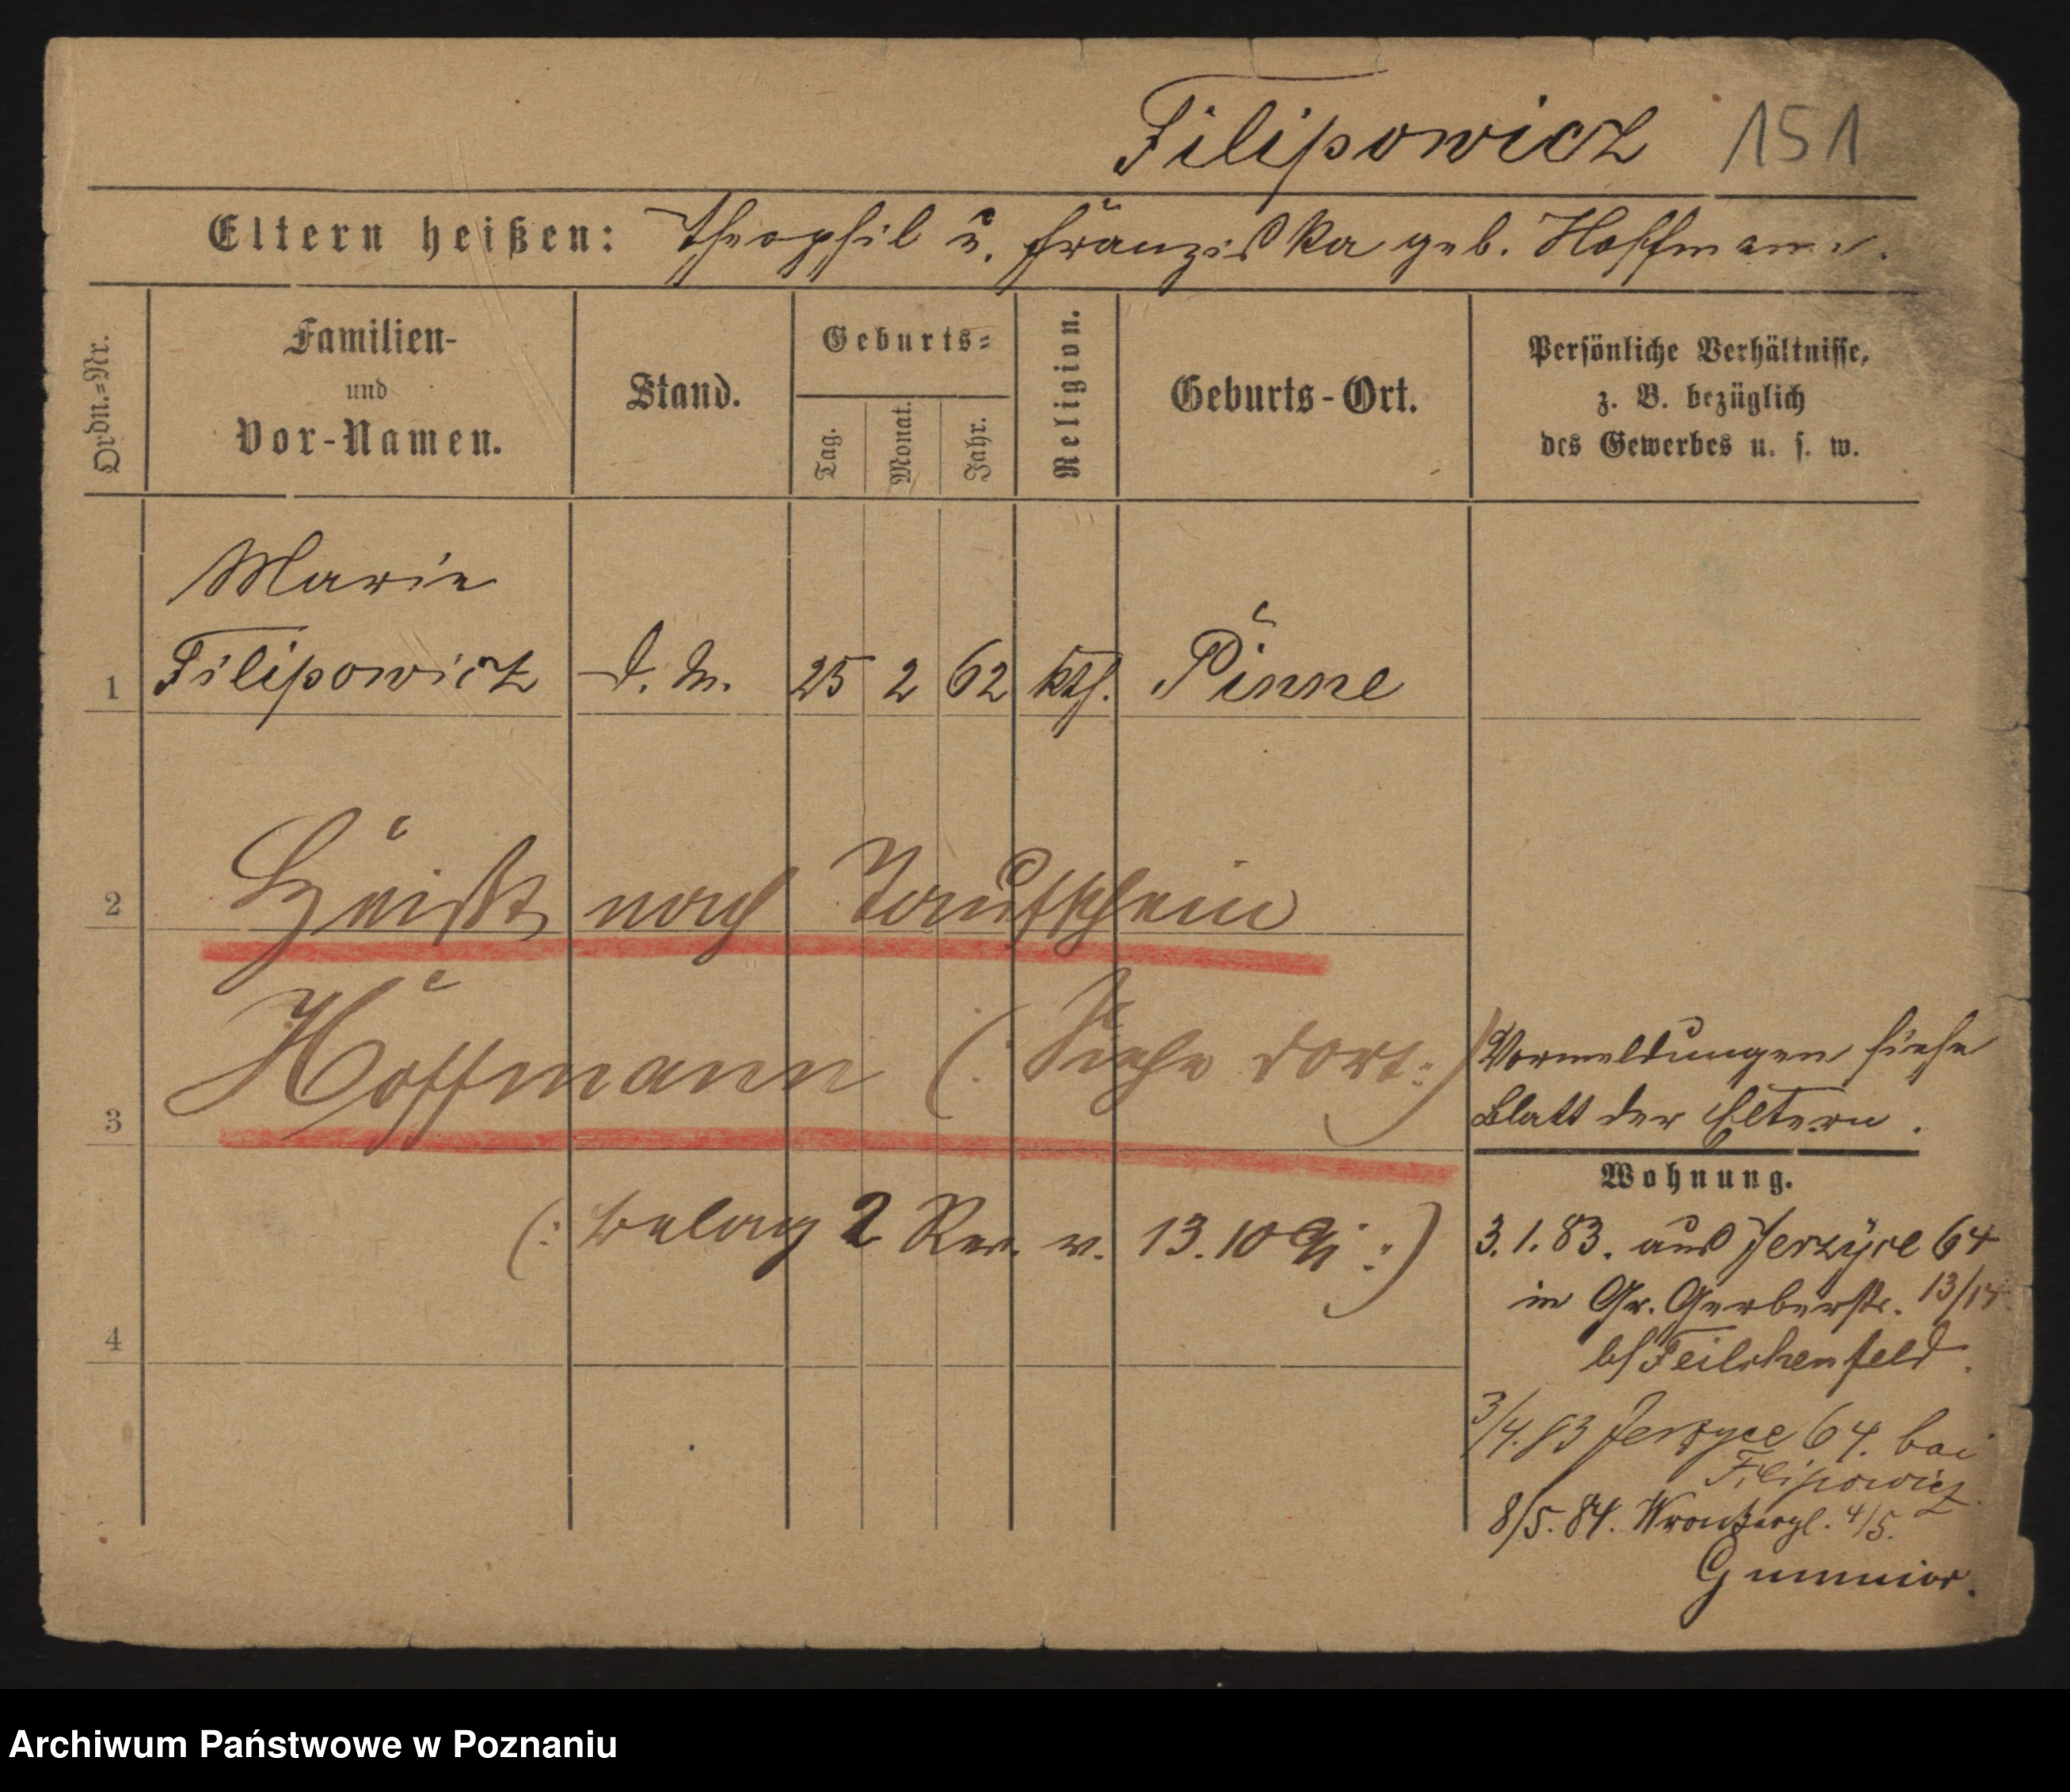 Filipowicz 151
Eltern heißen: Theophil u. Franziska geb. Hoffmann.
Ordn.=Nr.
Familien-
und
Vor-Namen.
Stand.
Geburts=
Tag.
Monat.
Jahr.
Religion.
Geburts-Ort.
Persönliche Verhältnisse,
z. B. bezüglich
des Gewerbes u. s. w.
Marie
1 Filipowicz d. M. 25 2 62 kth. Pinne
2 Heißt nach Taufschein
3 Hoffmann (: Siehe dort :)
Vormeldungen siehe
Blatt der Eltern.
Wohnung.
(: Belag 2 Rev. v. 13.10 :)
3.1.83. aus Jerzyce 64
in Gr. Gerberstr. 13/14
b/ Feilchenfeld.
4
3/4.83 Jerzyce 64. bei
Filipowicz.
8/5.84. Wronkerpl. 4/5.
Archiwum Państwowe w Poznaniu